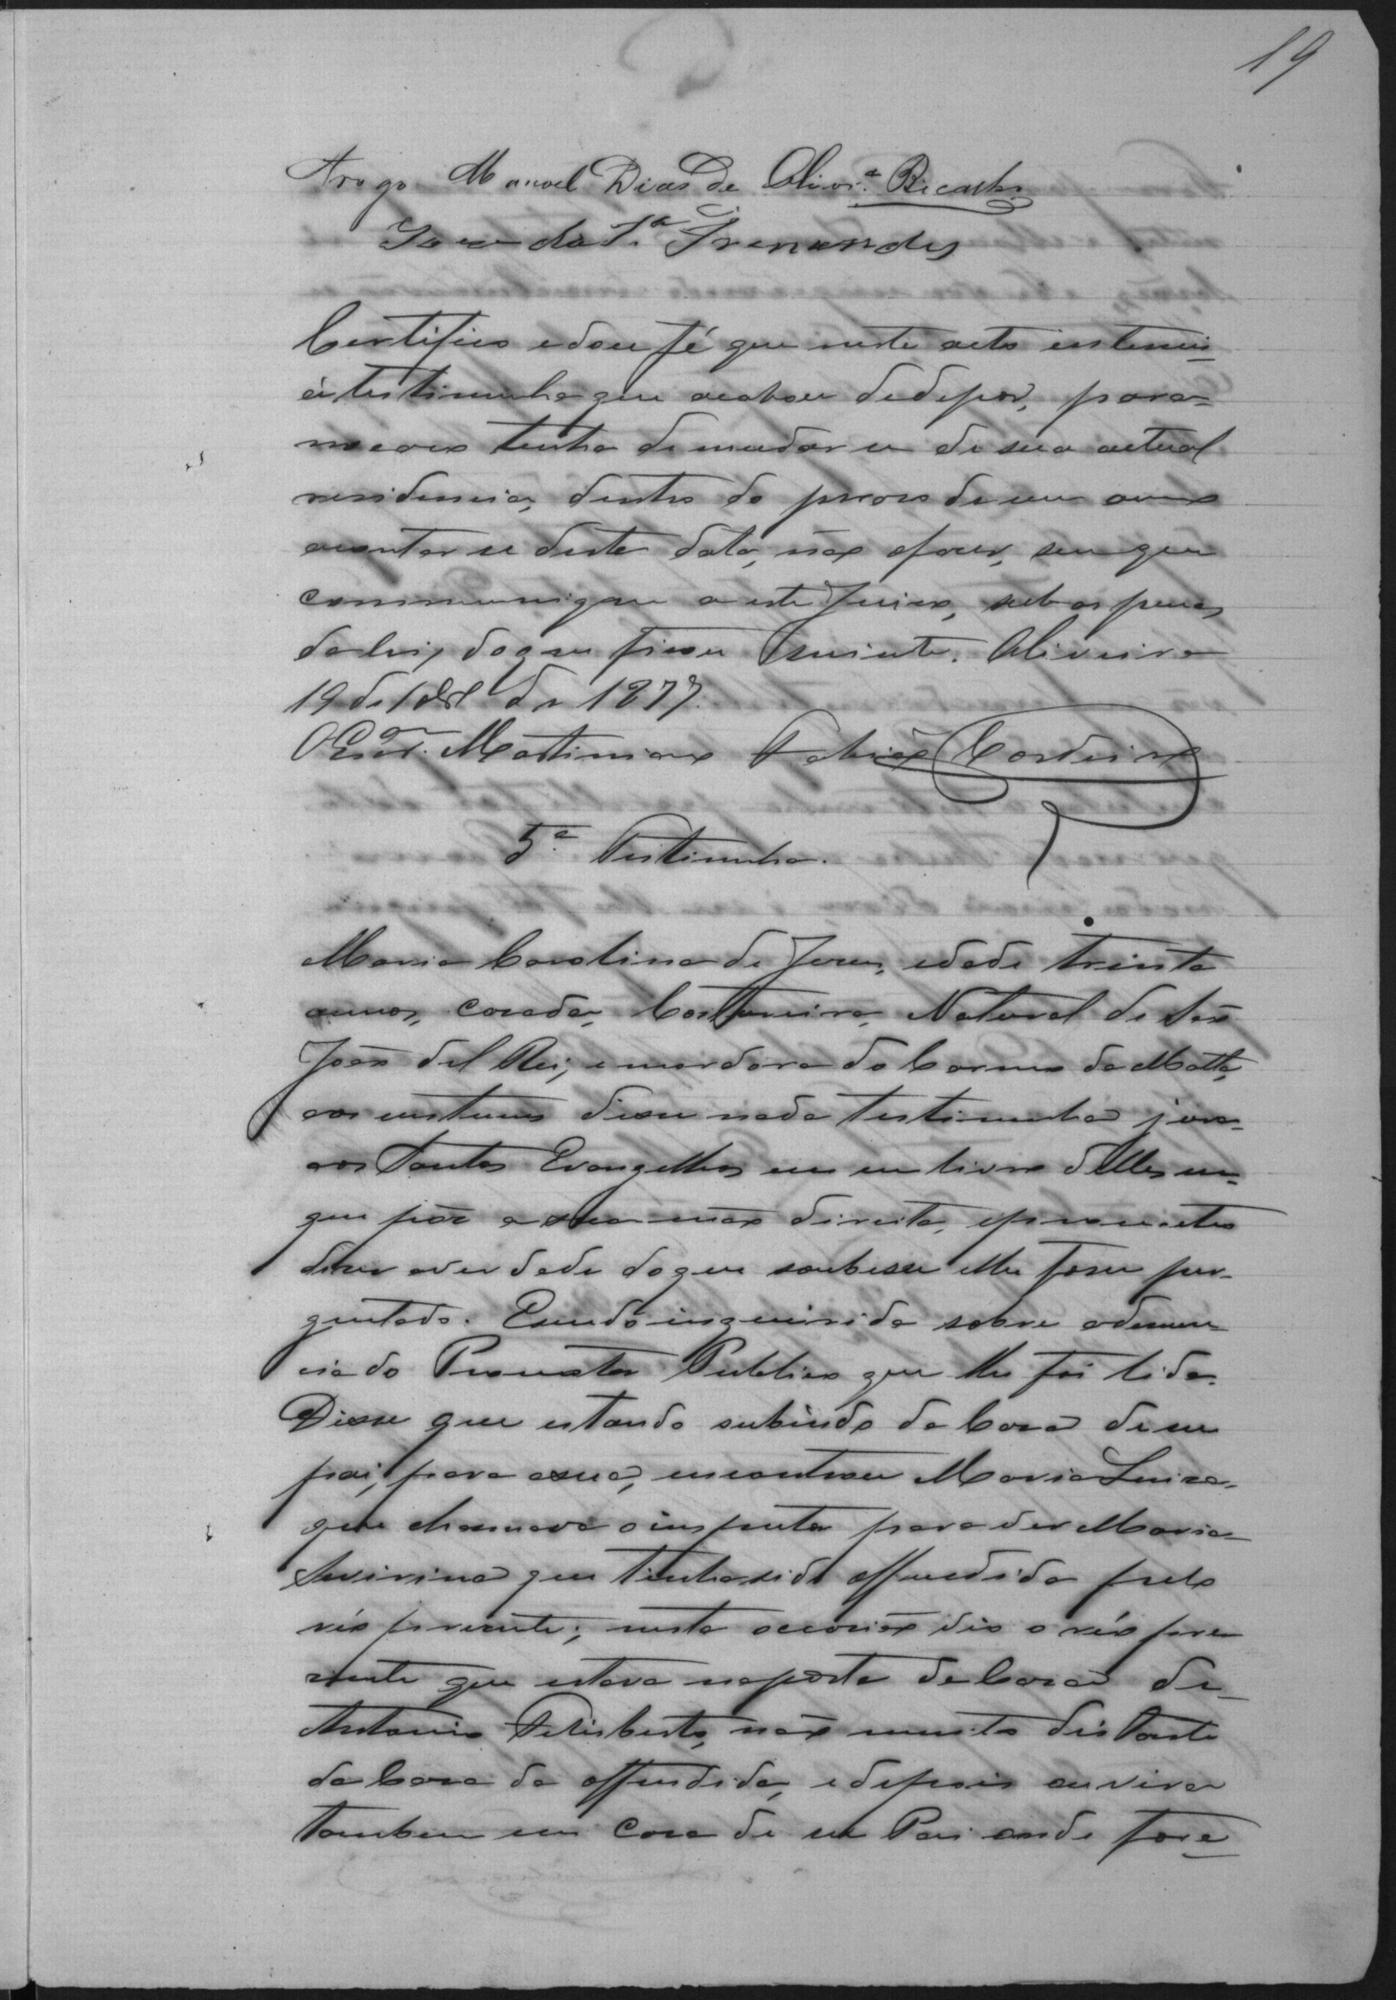 19
Arogo Manoel Dias de Olivr.ª Ricardo
José da S.ª Frenandes
Certifico e dou fé que neste acto intemei
á testimunha que acabou de depor, para
no caso tenha de mudar se de sua actual
residencia, dentro do praso de um anno
acontar se desta data, não o faser, sem que
communique a este Juiso, sob as penas
da lei, do que ficou sciente. Oliveira
19 de de 1877.
O Escr.am Martiniano Fabião Cordeiro
5ª Testimunha.
Maria Carolina de Jesus, idade trinta
annos, casada, Costureira, Natural de São
João del Rei, e moradora do Carmo da Matta,
aos custumes disse nada testimunha jura
aos Santos Evangelhos em um livro delles em
que pôs a sua mão direita, e prometeo
diser a verdade do que soubesse e lhe fosse per-
guntado. E sendo inquirida sobre a denun-
cia do Promotor Publico que lhe foi lida.
Disse que estando subindo da Casa de seu
pai, para a sua, encontrou Maria Luisa,
que chamava o inspector para ver Maria
Severina que tinha sido offendida pelo
réo presente; nesta occasião vio o réo pre
sente que estava na porta da Casa de
Antonio Felisberto, não muito distante
da Casa da offendida, e depois ouvira
tambem em casa de seu Pai onde fora